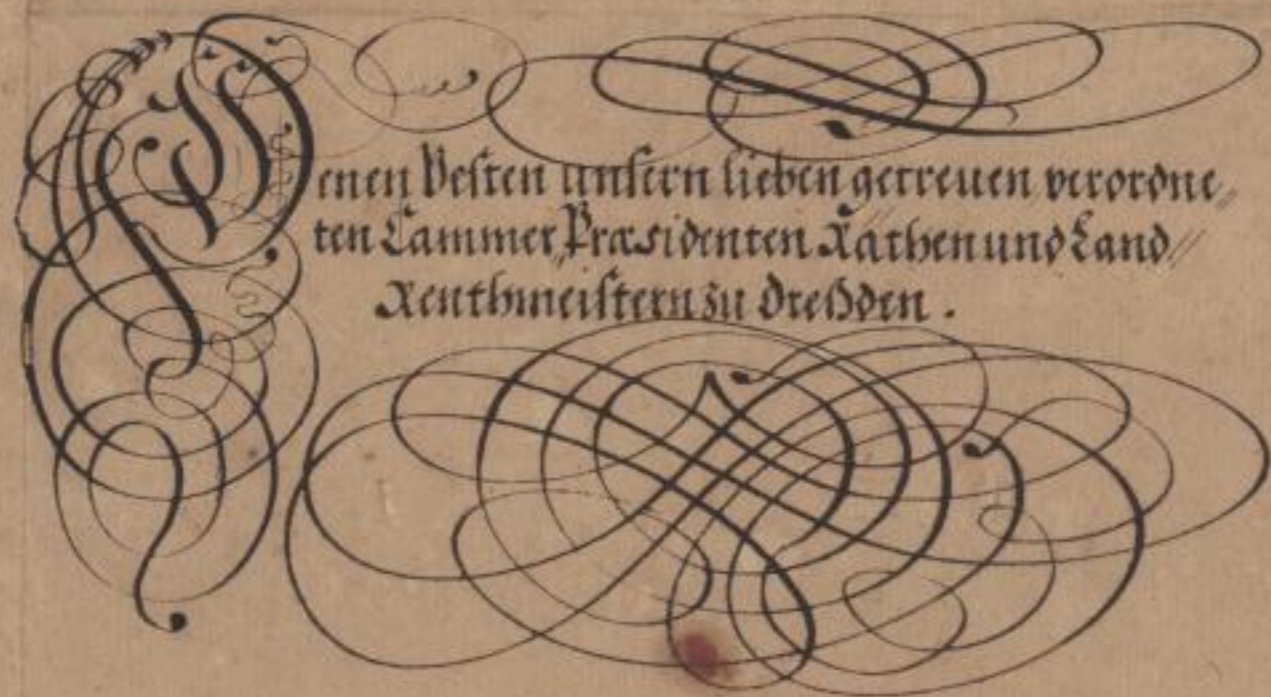 Denen Vesten unsern lieben getreuen verordne„
ten Cammer„Præsidenten Räthen und Land„
Renthmeistern zu Dreßden.